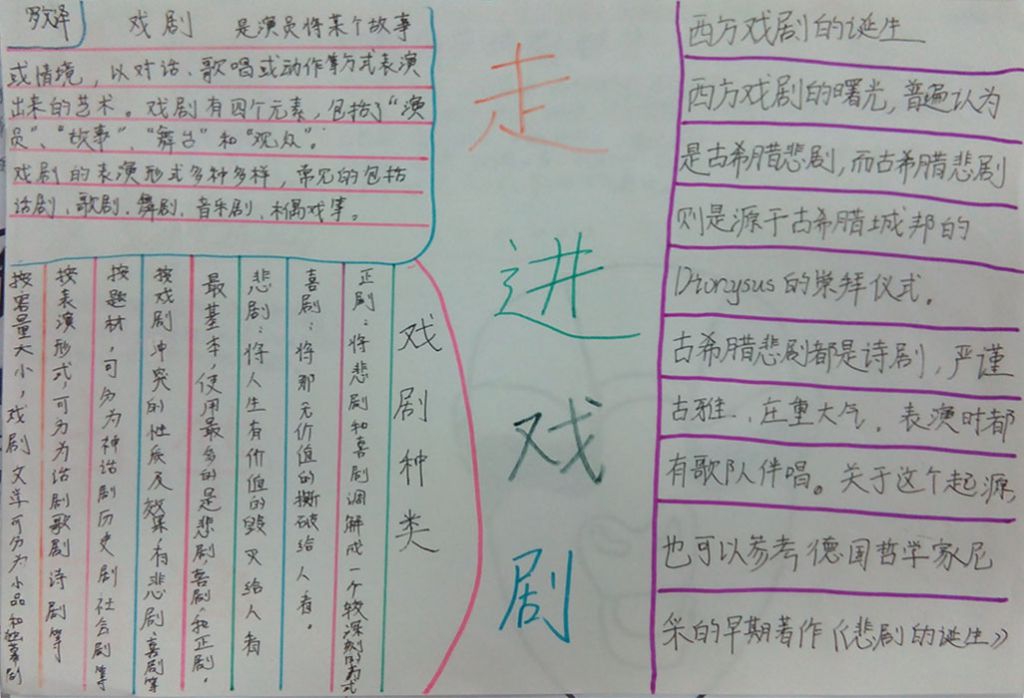 戏剧 是演员将某个故事
或情境，以对话、歌唱或动作等方式表演
出来的艺术。戏剧有四个元素，包括了“演
员”、“故事”、“舞台”和“观众”。
戏剧的表演形式多种多样，常见的包括
话剧、歌剧、舞剧、音乐剧、木偶戏等。
走
进
戏
剧
西方戏剧的诞生
西方戏剧的曙光，普遍认为
是古希腊悲剧，而古希腊悲剧
则是源于古希腊城邦的
Dionysus的崇拜仪式。
古希腊悲剧都是诗剧，严谨
古雅、庄重大气。表演时都
有歌队伴唱。关于这个起源，
也可以参考德国哲学家尼
采的早期著作《悲剧的诞生》
戏剧种类
正剧：将悲剧和喜剧调解成一个较深刻的方式
喜剧：将那无价值的撕破给人看。
悲剧：将人生有价值的毁灭给人看
最基本，使用最多的是悲剧，喜剧，和正剧。
按戏剧冲突的性质及效果，有悲剧，喜剧等
按题材，可分为神话剧历史剧社会剧等
按表演形式，可分为话剧歌剧诗剧等
按容量大小，戏剧文学可分为小品和独幕剧